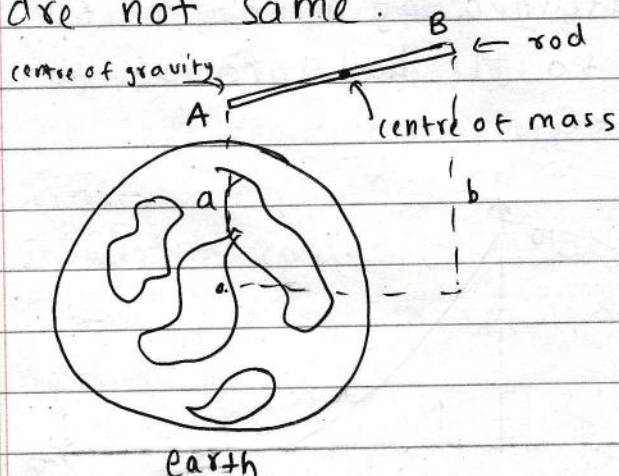 are not same.
B
← rod
centre of gravity
A
centre of mass
a
b
o
earth